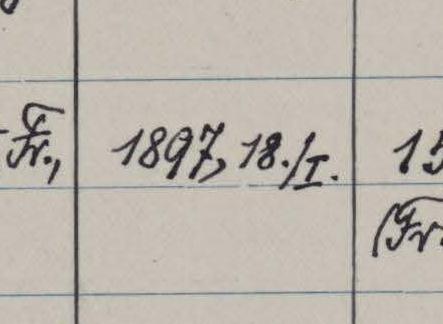 Fr., 1897, 18./I. 15
(Fr.